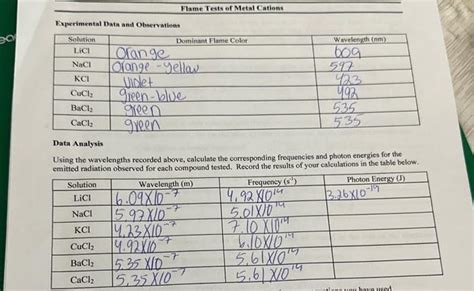 Flame Tests of Metal Cations
Experimental Data and Observations
Solution Dominant Flame Color Wavelength (nm)
LiCl Orange 609
NaCl Orange-Yellow 597
KCl Violet 423
CuCl₂ green-blue 492
BaCl₂ green 535
CaCl₂ green 535
Data Analysis
Using the wavelengths recorded above, calculate the corresponding frequencies and photon energies for the
emitted radiation observed for each compound tested. Record the results of your calculations in the table below.
Solution Wavelength (m) Frequency (s⁻¹) Photon Energy (J)
LiCl 6.09X10⁻⁷ 4.92X10¹⁴ 3.26X10⁻¹⁹
NaCl 5.97X10⁻⁷ 5.01X10¹⁴
KCl 4.23X10⁻⁷ 7.10X10¹⁴
CuCl₂ 4.92X10⁻⁷ 6.10X10¹⁴
BaCl₂ 5.35X10⁻⁷ 5.61X10¹⁴
CaCl₂ 5.35X10⁻⁷ 5.61X10¹⁴
you have used